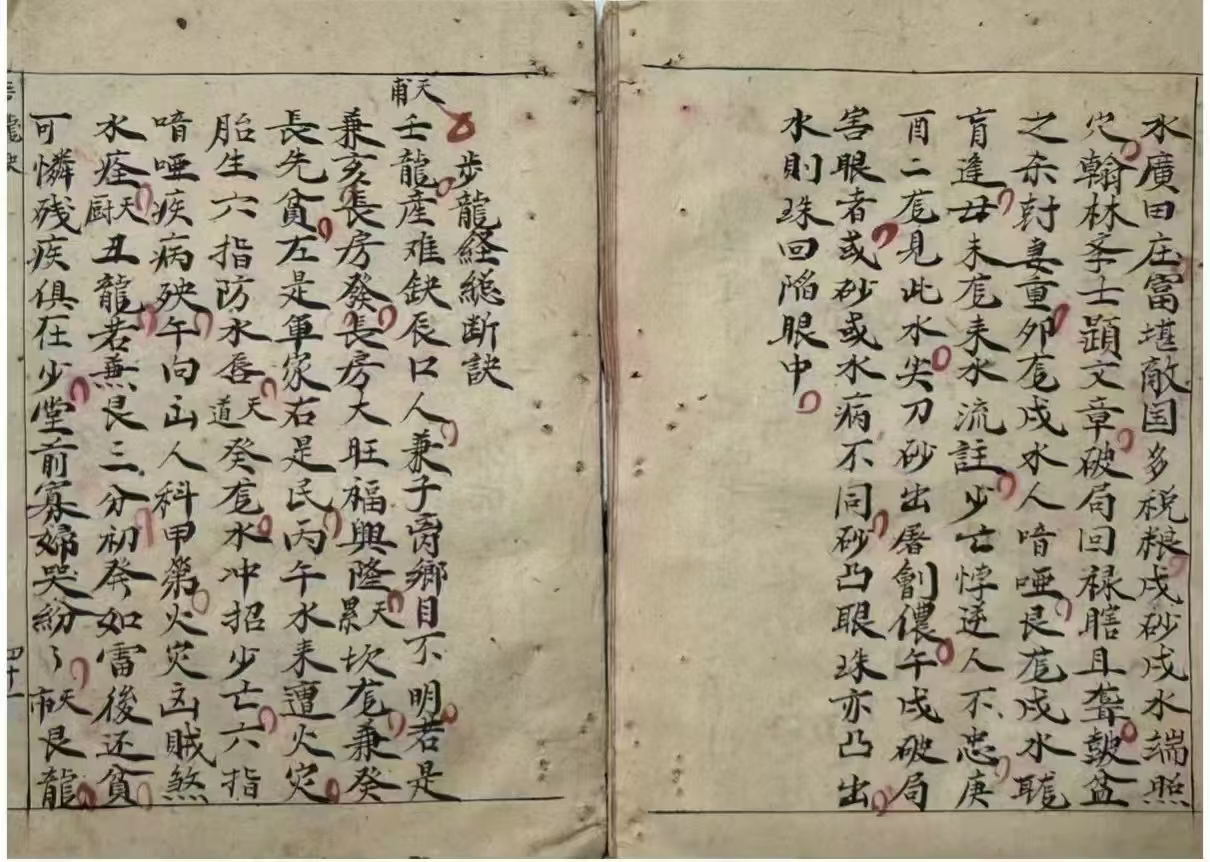 水廣田庄富堪敵国多税粮戍砂戍水端照
穴翰林李士題文章破局回禄瞎且聾皷盆
之杀尅妻重夘竜戍水人喑啞艮竜戍水聽
肓逢丑未竜来水流註少亡悖逆人不忠庚
酉二竜見此水尖刀砂出屠劊儂午戍破局
害眼者或砂或水病不同砂凸眼珠亦凸出
水則珠回陷眼中
步龍経総断訣
天甫壬龍産难缺辰口人兼子离鄉目不明若是
兼亥長房發長房大旺福興隆天累坎竜兼癸
長先貧左是軍家右是民丙午水来遭火灾
胎生六指防水唇天道癸竜水冲招少亡六指
喑啞疾病殃午向函人科甲第火灾凶賊煞
水痊天厨丑龍若兼艮三分初發如雷後还貧
可憐残疾俱在少堂前寡婦哭紛々天市艮龍
龍訣
四十一